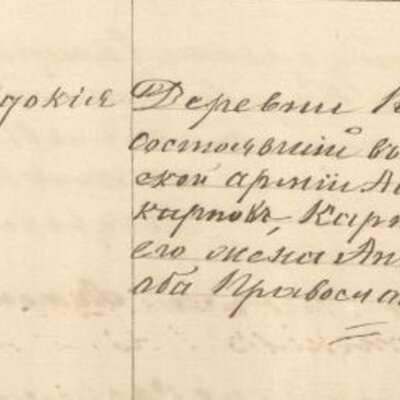 докія Деревни
состоявшій въ
ской арміи
карповъ Карп
его жена Ан
оба Правосла